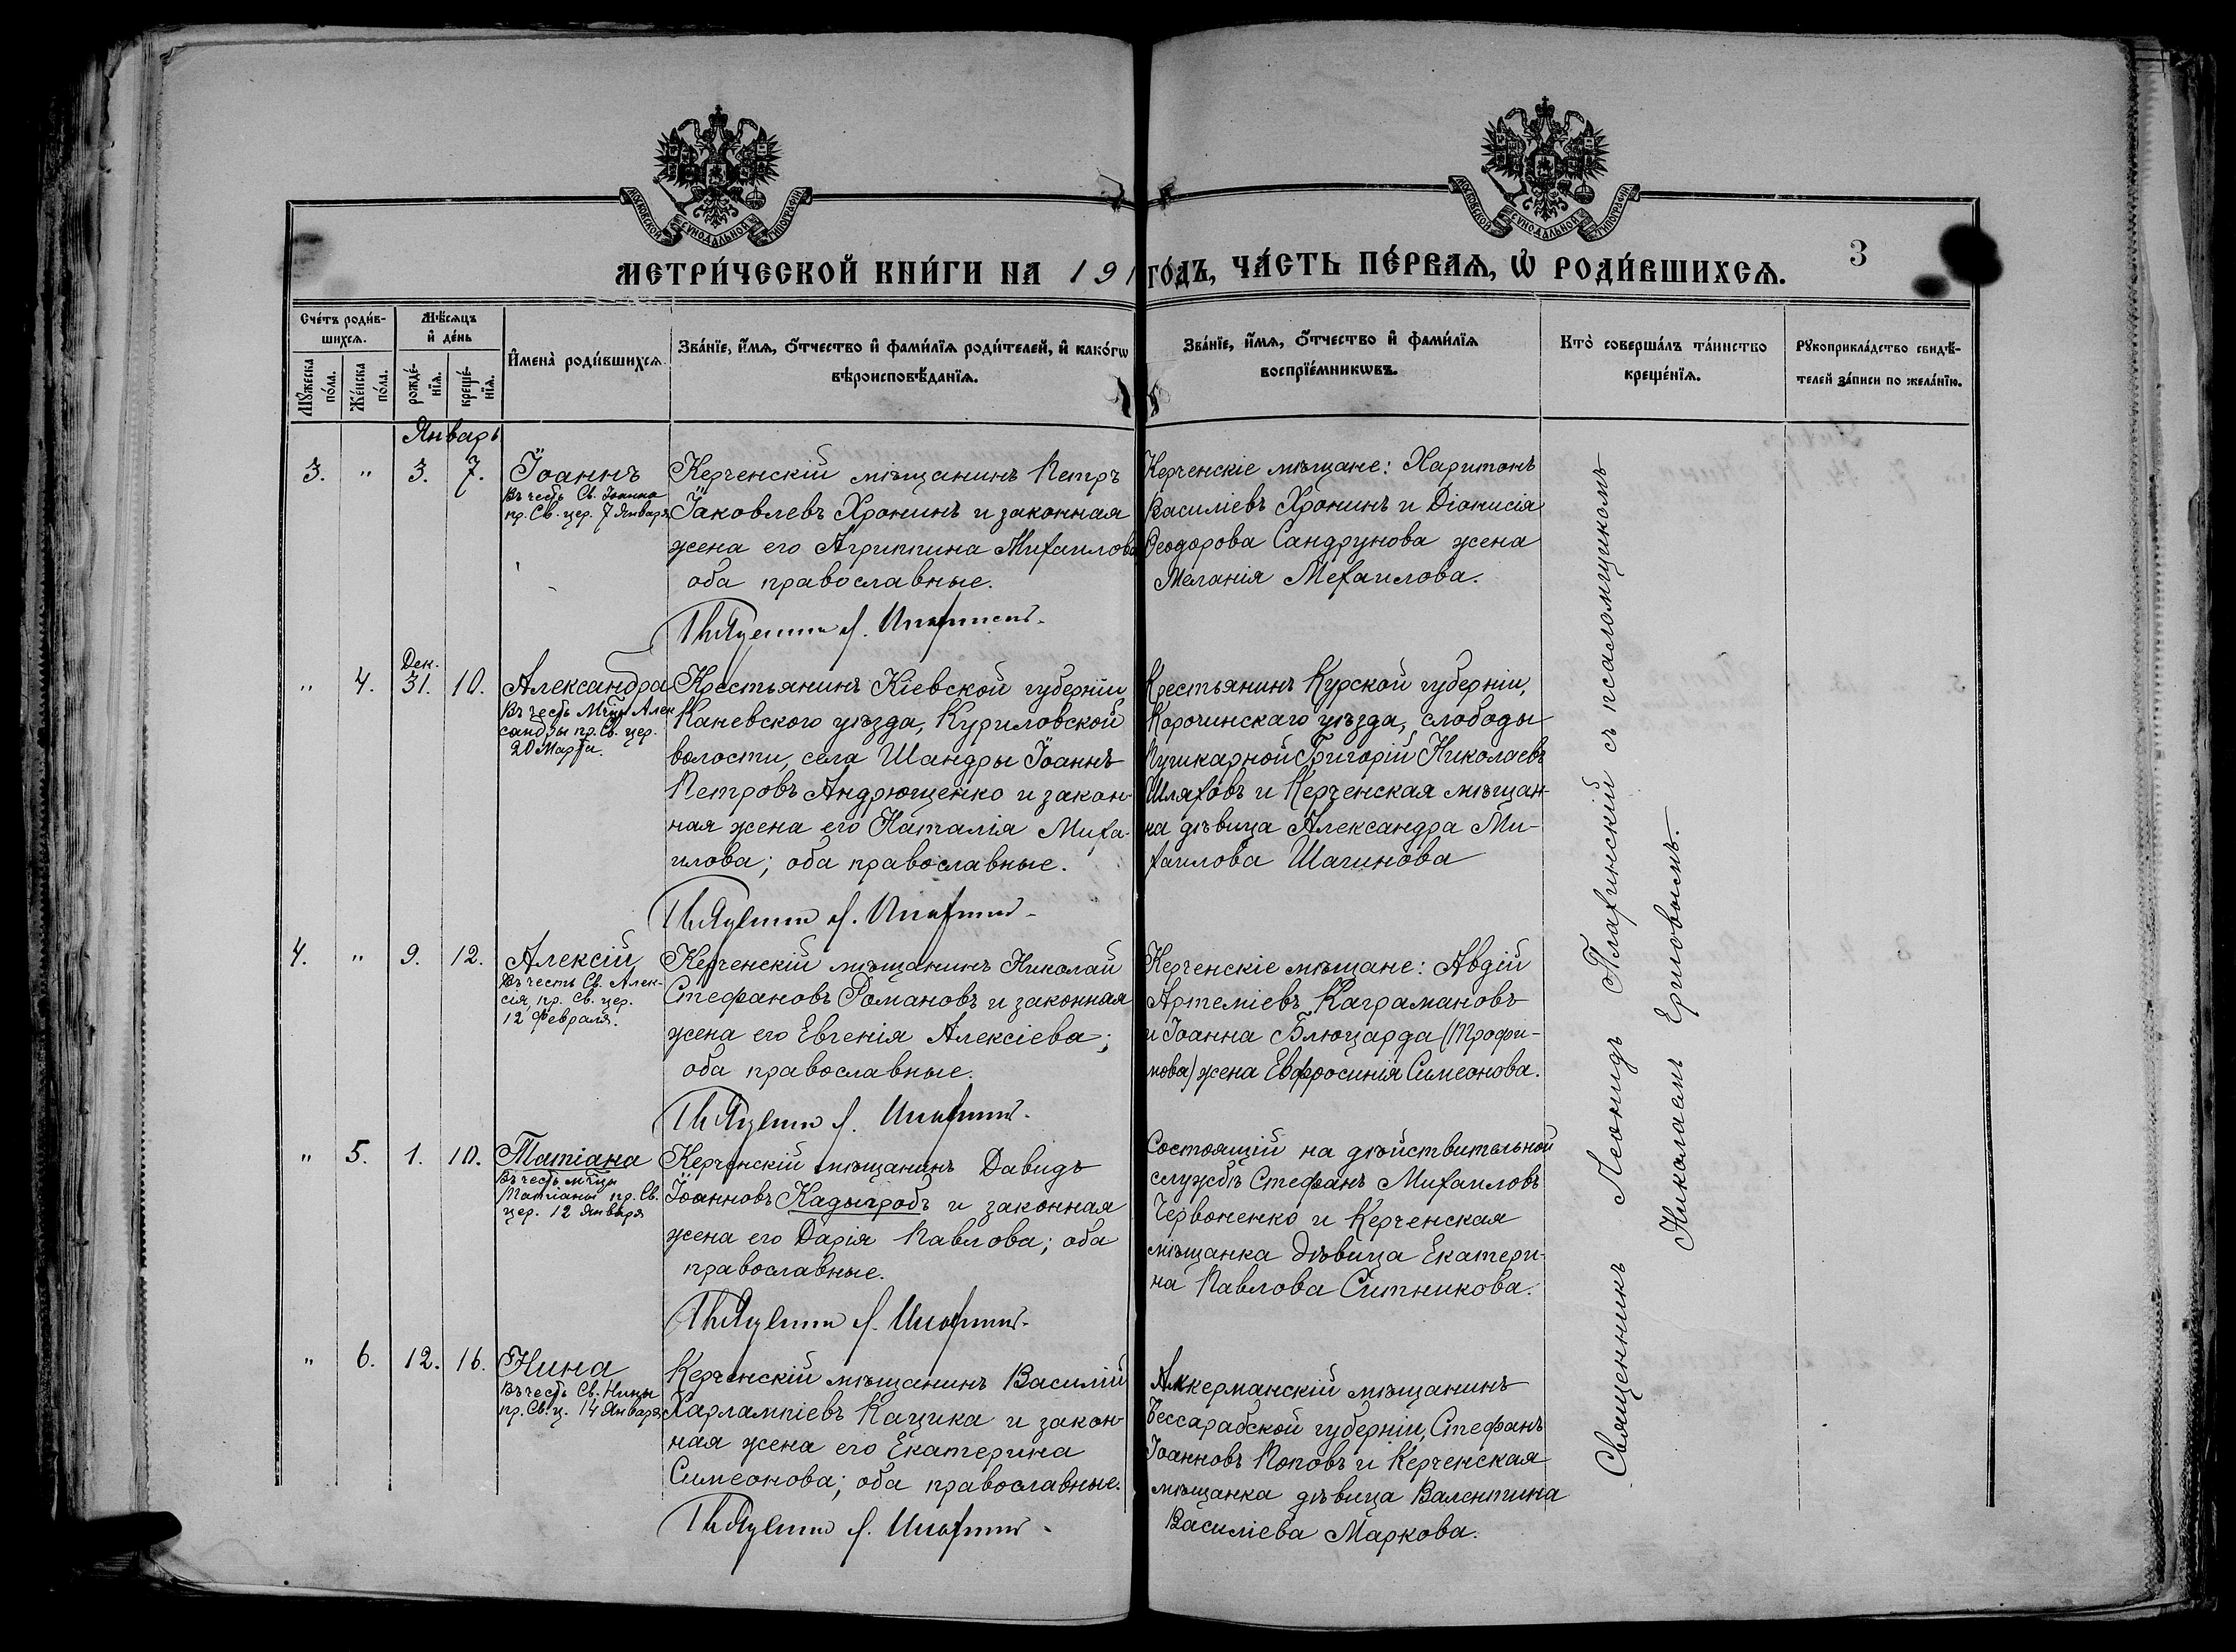 МОСКОВСКОЙ СѴНОДАЛЬНОЙ ТИПОГРАФІИ
МОСКОВСКОЙ СѴНОДАЛЬНОЙ ТИПОГРАФІИ
МЕТРИ́ЧЕСКОЙ КНИ́ГИ НА 191
ГО́ДЪ, ЧА́СТЬ ПЕ́РВАѦ, Ѡ҆ РОДИ́ВШИХСѦ.
3
Сче́тъ роди́в-
шихсѧ.
Мꙋ́жеска
по́ла.
Же́нска
по́ла.
Мѣ́сѧцъ
и҆ де́нь
рожде́-
нїѧ.
креще́-
нїѧ.
И҆мена̀ роди́вшихсѧ
Зва́нїе, и҆́мѧ, ѻ҆́тчество и҆ фами́лїѧ роди́телей, и҆ како́гѡ
вѣроисповѣ́данїѧ.
Зва́нїе, и҆́мѧ, ѻ҆́тчество и҆ фами́лїѧ
воспрїе́мникѡвъ.
Кто̀ соверша́лъ та́инство
креще́нїѧ.
Рꙋкоприкла́дство свидѣ́-
телей за́писи по жела́нїю.
Январь
3. " 3. 7. Іоаннъ
Въ честь Св. Іоанна
пр. Св. цер. 7 Января
Керченскій мѣщанинъ Петръ
Іаковлевъ Хронинъ и законная
жена его Агриппина Михаилова
оба православные.
Керченскіе мѣщане: Харитонъ
Василіевъ Хронинъ и Діонисія
Ѳеодорова Сандрунова жена
Меланія Мехаилова.
Дек.
" 4. 31. 10. Александра
Въ честь Мчцы Алек
сандры пр. Св. цер.
20 Марта.
Крестьянинъ Кіевской губерніи,
Каневского уѣзда, Куриловской
волости, села Шандры Іоаннъ
Петровъ Андрющенко и закон-
ная жена его Наталія Миха-
илова; оба православные.
Крестьянинъ Курской губерніи,
Корочинскаго уѣзда, слободы
Пушкарной Григорій Николаевъ
Шляховъ и Керченская мѣщан-
ка дѣвица Александра Ми-
хаилова Шагинова
4. " 9. 12. Алексій
Въ честь Св. Алек-
сія, пр. Св. цер.
12 Февраля.
Керченскій мѣщанинъ Николай
Стефановъ Романовъ и законная
жена его Евгенія Алексіева;
оба православные.
Керченскіе мѣщане: Авдій
Артеміевъ Каграмановъ
и Іоанна Блюцарда (Трофи-
мова) жена Евфросинія Симеонова.
" 5. 1. 10. Татіана
Въ честь мчцы
Татіаны пр. Св.
цер. 12 Января
Керченскій мѣщанинъ Давидъ
Іоанновъ Кадыгробъ и законная
жена его Дарія Павлова; оба
православные.
Состоящій на дѣйствительной
службѣ Стефанъ Михаиловъ
Червоненко и Керченская
мѣщанка дѣвица Екатери-
на Павлова Ситникова.
" 6. 12. 16. Нина
Въ честь Св. Нины
пр. Св. ц. 14 Января
Керченскій мѣщанинъ Василій
Харлампіевъ Кацика и закон-
ная жена его Екатерина
Симеонова; оба православные.
Аккерманскій мѣщанинъ
Бессарабской губерніи, Стефанъ
Іоанновъ Поповъ и Керченская
мѣщанка дѣвица Валентина
Василіева Маркова.
Священникъ Леонидъ Плахинскій съ псаломщикомъ
Николаемъ Ериговымъ.